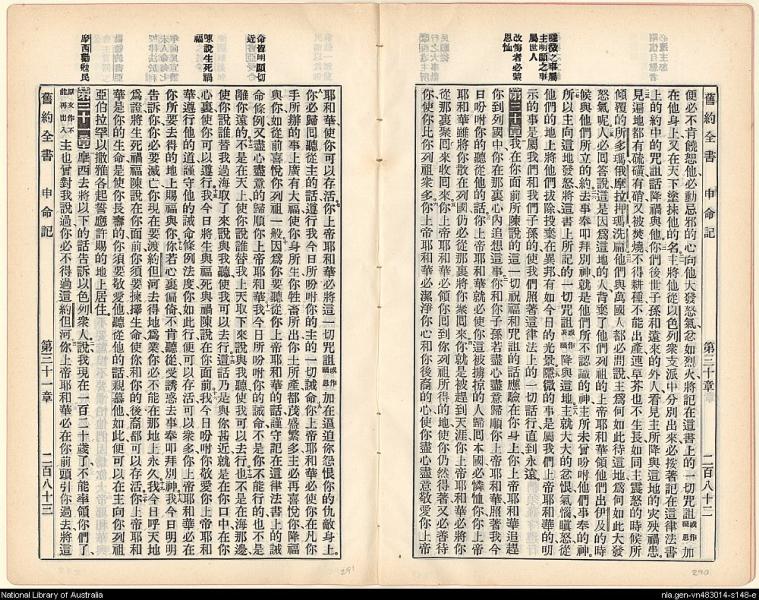 舊約全書 申命記 第三十章 二百八十二
隱微之事屬主明顯之事屬世人
改悔者必蒙恩恤
便必不肯饒恕他必動忌邪的心向他大發怒氣忿如烈火將記在這書上的一切咒詛加
在他身上又在天下塗抹他的名主將他從以色列衆支派中分別出來必按著記在這律法書
上的約中的咒詛話降禍與他你們後世子孫和遠來的外人看見主所降與這地的災殃禍患
見遍地都有硫磺有硝又被焚燒不得耕種不能出產連草芥也不生長如同主震怒的時候所
傾覆的所多瑪俄摩拉押瑪洗扁他們與萬國人都必問說主爲何如此待這地爲何如此大發
怒氣呢人必回答說這是因爲這地的人背棄了他們列祖的上帝耶和華領他們出伊及的時
候與他們所立的約去事奉叩拜別神就是他們所不認識的神主所未曾吩咐他們事奉的神
所以主向這地發怒將這書上所記的一切咒詛降與這地主就大大的忿恨氣惱瞋怒從
他們的地上將他們拔除抛棄在異邦有如今日的光景隱微的事是屬我們上帝耶和華的明
示的事是屬我們和我們子孫的使我們照著這律法上的一切話行直到永遠
第三十章 我在你面前所陳說的這一切祝福和咒詛的話應驗在你身上你上帝耶和華趕
你到列國中你在那裏心內追想這事你和你子孫若盡心盡意歸順你上帝耶和華照著我今
日吩咐你的聽從他的話你上帝耶和華就必使你這被擄掠的人歸回本國必憐恤你你上帝
耶和華雖將你散在列國仍必從那裏將你衆回來你就是被趕到天涯你上帝耶和華必將你
從那裏聚回來收回來你上帝耶和華必領你回到你列祖所得的地使你仍然得著又必善待
你使你比你列祖衆多你上帝耶和華必潔淨你心和你後裔的心使你盡心盡意敬愛你上帝
命值明顯切近
陳說生死禍福
摩西勸敉民
耶和華使你可以存活你上帝耶和華必將這一切咒詛加在逼迫你怨恨你的仇敵身上
你必歸回聽從主的話遵行我今日所吩咐你的主的一切誡命你上帝耶和華必使你在凡你
手所辦的事上廣有大福使你身所生你牲畜所出你土所產都茂盛繁多主必再喜悅你降福
與你如從前喜悅你列祖一般因爲你要聽從你上帝耶和華的話謹守記在這律法書上的誡
命條例又盡心盡意的歸順你上帝耶和華我今日所吩咐你的誡命不是你不能行的也不是
離你遠的不是在天上使你說誰替我上天取下來說與我聽使我可以去行也不是在海那邊
使你說誰替我過海取了來說與我聽使我可以去行這話乃是與你甚近就是在你口中在你
心裏使你可以遵行我今日將生與福死與禍陳說在你面前我今日吩咐你敬愛你上帝耶和
華遵行他的道謹守他的誡命條例法度你如此行便可以存活可以衆多你上帝耶和華必在
你所要去得的地上賜福與你你若心裏偏倚不肯聽從受誘惑去事奉叩拜別神我今日明明
告訴你你必要滅亡你現在要渡約但河去得地爲業你必不能在那地上永久我今日呼天地
爲證將生死福禍陳說在你面前你須要揀擇生命使你和你的後裔都可以存活你上帝耶和
華是你的生命是使你長壽的你須要敬愛他聽從他的話親慕他如此便可以在主向你列祖
亞伯拉罕以撒雅各起誓應許賜的地上居住
第三十一章 摩西去將以下的話告訴以色列衆人說我現在一百二十歲了不能率領你們了
主也曾對我說過你必不得過這約但河你上帝耶和華必在你前頭引你過去將這
舊約全書 申命記 第三十一章 二百八十三
291
290
National Library of Australia
nla.gen-vn483014-s148-e